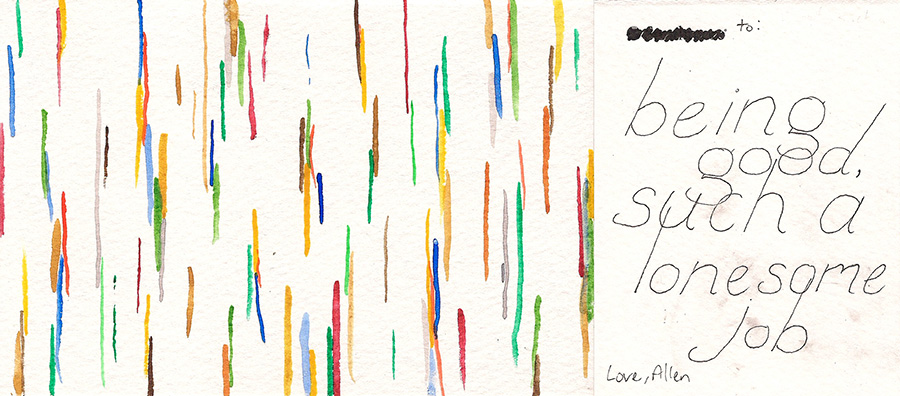 to:
being
good,
such a
lonesome
job
Love, Allen